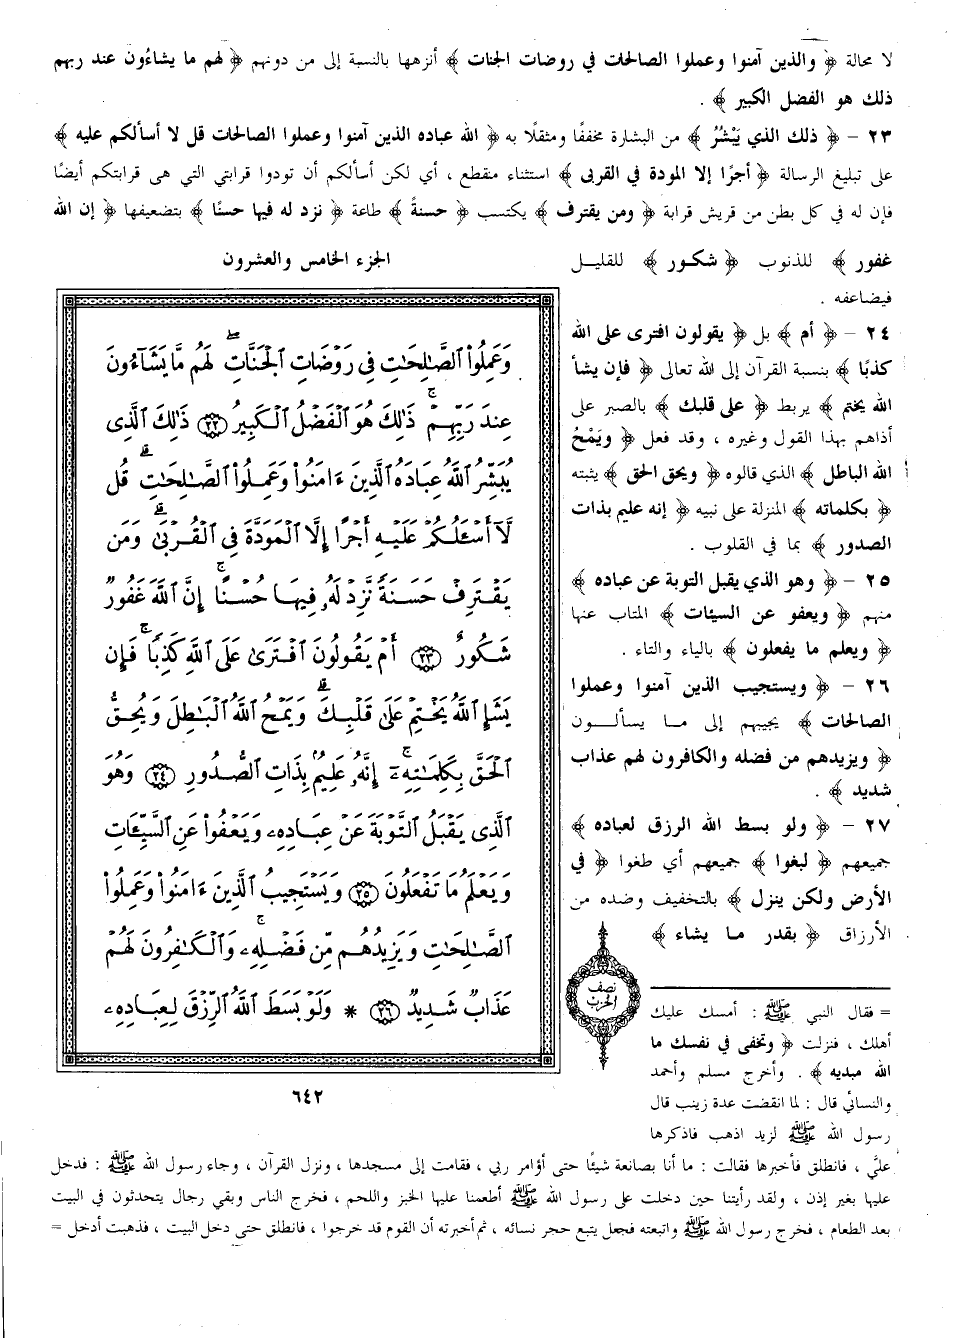 لا محالة ﴿ والذين آمنوا وعملوا الصالحات في روضات الجنات ﴾ أنزهها بالنسبة إلى من دونهم ﴿ لهم ما يشاءون عند ربهم
ذلك هو الفضل الكبير ﴾ .
٢٣ – ﴿ ذلك الذي يَبْشُرُ ﴾ من البشارة مخففًا ومثقلًا به ﴿ الله عباده الذين آمنوا وعملوا الصالحات قل لا أسألكم عليه ﴾
على تبليغ الرسالة ﴿ أجرًا إلا المودة في القربى ﴾ استثناء منقطع ، أي لكن أسألكم أن تودوا قرابتي التي هى قرابتكم أيضًا
فإن له في كل بطن من قريش قرابة ﴿ ومن يقترف ﴾ يكتسب ﴿ حسنةً ﴾ طاعة ﴿ نزد له فيها حسنًا ﴾ بتضعيفها ﴿ إن الله
غفور ﴾ للذنوب ﴿ شكور ﴾ للقليل
فيضاعفه .
٢٤ – ﴿ أم ﴾ بل ﴿ يقولون افترى على الله
كذبًا ﴾ بنسبة القرآن إلى الله تعالى ﴿ فإن يشأ
الله يختم ﴾ يربط ﴿ على قلبك ﴾ بالصبر على
أذاهم بهذا القول وغيره ، وقد فعل ﴿ ويَمْحُ
الله الباطل ﴾ الذي قالوه ﴿ ويحق الحق ﴾ يثبته
﴿ بكلماته ﴾ المنزلة على نبيه ﴿ إنه عليم بذات
الصدور ﴾ بما في القلوب .
٢٥ – ﴿ وهو الذي يقبل التوبة عن عباده ﴾
منهم ﴿ ويعفو عن السيئات ﴾ المتاب عنها
﴿ ويعلم ما يفعلون ﴾ بالياء والتاء .
٢٦ – ﴿ ويستجيب الذين آمنوا وعملوا
الصالحات ﴾ يجيبهم إلى ما يسألون
﴿ ويزيدهم من فضله والكافرون لهم عذاب
شديد ﴾ .
٢٧ – ﴿ ولو بسط الله الرزق لعباده ﴾
جميعهم ﴿ لبغوا ﴾ جميعهم أي طغوا ﴿ في
الأرض ولكن ينزل ﴾ بالتخفيف وضده من
الأرزاق ﴿ بقدر ما يشاء ﴾
الجزء الخامس والعشرون
وَعَمِلُوا۟ ٱلصَّٰلِحَٰتِ فِى رَوْضَاتِ ٱلْجَنَّاتِ ۖ لَهُم مَّا يَشَآءُونَ
عِندَ رَبِّهِمْ ۚ ذَٰلِكَ هُوَ ٱلْفَضْلُ ٱلْكَبِيرُ ﴿٢٢﴾ ذَٰلِكَ ٱلَّذِى
يُبَشِّرُ ٱللَّهُ عِبَادَهُ ٱلَّذِينَ ءَامَنُوا۟ وَعَمِلُوا۟ ٱلصَّٰلِحَٰتِ ۗ قُل
لَّآ أَسْـَٔلُكُمْ عَلَيْهِ أَجْرًا إِلَّا ٱلْمَوَدَّةَ فِى ٱلْقُرْبَىٰ ۗ وَمَن
يَقْتَرِفْ حَسَنَةً نَّزِدْ لَهُۥ فِيهَا حُسْنًا ۚ إِنَّ ٱللَّهَ غَفُورٌ
شَكُورٌ ﴿٢٣﴾ أَمْ يَقُولُونَ ٱفْتَرَىٰ عَلَى ٱللَّهِ كَذِبًا ۖ فَإِن
يَشَإِ ٱللَّهُ يَخْتِمْ عَلَىٰ قَلْبِكَ ۗ وَيَمْحُ ٱللَّهُ ٱلْبَٰطِلَ وَيُحِقُّ
ٱلْحَقَّ بِكَلِمَٰتِهِۦٓ ۚ إِنَّهُۥ عَلِيمٌۢ بِذَاتِ ٱلصُّدُورِ ﴿٢٤﴾ وَهُوَ
ٱلَّذِى يَقْبَلُ ٱلتَّوْبَةَ عَنْ عِبَادِهِۦ وَيَعْفُوا۟ عَنِ ٱلسَّيِّـَٔاتِ
وَيَعْلَمُ مَا تَفْعَلُونَ ﴿٢٥﴾ وَيَسْتَجِيبُ ٱلَّذِينَ ءَامَنُوا۟ وَعَمِلُوا۟
ٱلصَّٰلِحَٰتِ وَيَزِيدُهُم مِّن فَضْلِهِۦ ۚ وَٱلْكَٰفِرُونَ لَهُمْ
عَذَابٌ شَدِيدٌ ﴿٢٦﴾ * وَلَوْ بَسَطَ ٱللَّهُ ٱلرِّزْقَ لِعِبَادِهِۦ
نصف
الحزب
٦٤٢
= فقال النبي ﷺ : أمسك عليك
أهلك ، فنزلت ﴿ وتخفى في نفسك ما
الله مبديه ﴾ . وأخرج مسلم وأحمد
والنسائي قال : لما انقضت عدة زينب قال
رسول الله ﷺ لزيد اذهب فاذكرها
عليَّ ، فانطلق فأخبرها فقالت : ما أنا بصانعة شيئًا حتى أؤامر ربي ، فقامت إلى مسجدها ، ونزل القرآن ، وجاء رسول الله ﷺ : فدخل
عليها بغير إذن ، ولقد رأيتنا حين دخلت على رسول الله ﷺ أطعمنا عليها الخبز واللحم ، فخرج الناس وبقي رجال يتحدثون في البيت
بعد الطعام ، فخرج رسول الله ﷺ واتبعته فجعل يتبع حجر نسائه ، ثم أخبرته أن القوم قد خرجوا ، فانطلق حتى دخل البيت ، فذهبت أدخل =